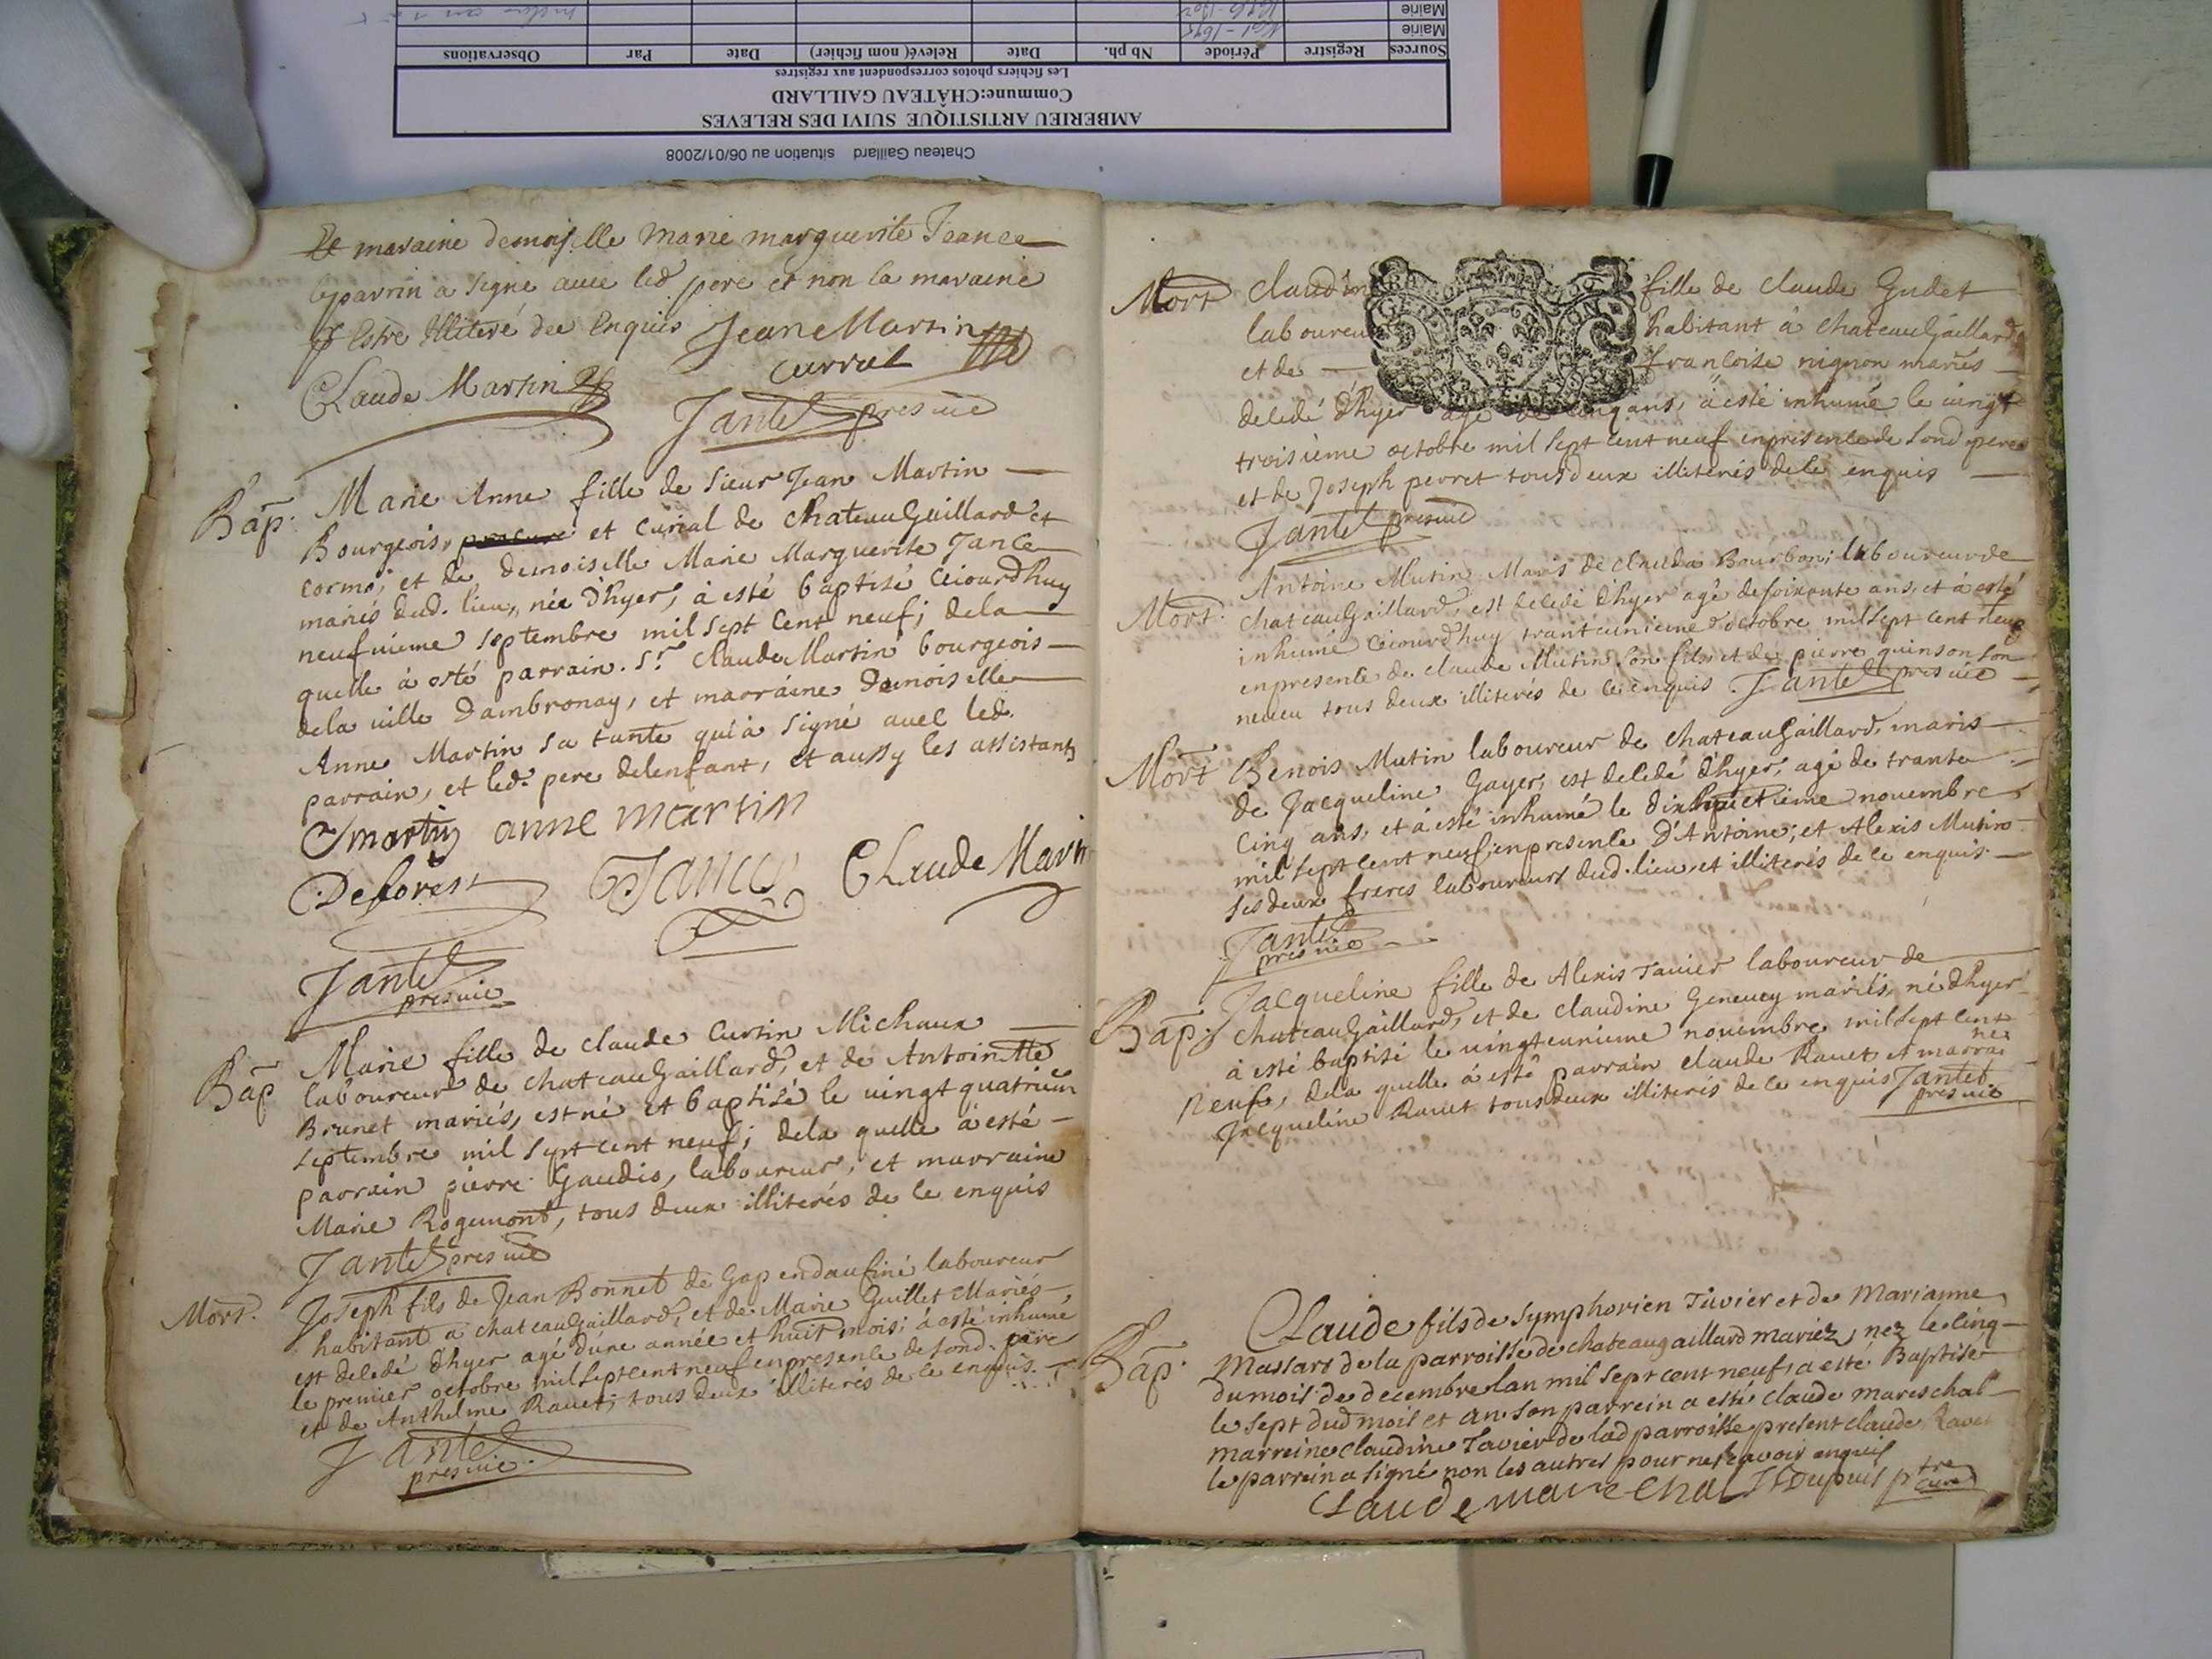 Chateau Gaillard situation au 06/01/2008
AMBERIEU ARTISTIQUE SUIVI DES RELEVES
Commune:CHÂTEAU GAILLARD
Les fichiers photos correspondent aux registres
Sources Registre Période Nb ph. Date Relevé( nom fichier) Date Par Observations
Mairie
Mairie
Et maraine demoiselle Marie marguerite Jeance
le parrin a signe avec led pere et non la maraine
Estre Illiteré dee Enquis Jean Martin
curral
Claude Martin
Jantet pres vic
Bap. Marie Anne fille de sieur Jean Martin
Bourgeois et curial de chateauGaillard et
cormo, et de demoiselle Marie Marguerite Jance
mariés dud. lieu, née d'hyer, à esté baptisé ceiourdhuy
neufuieme septembre mil sept cent neuf; dela
quelle à esté parrain. Sr. Claude Martin bourgeois
dela uille dambronay, et marraine demoiselle
Anne Martin sa tante qui à signé auec led.
parrain, et led. pere delenfant, et aussy les assistants
martin anne martin
Deforest Jance Claude Martin
Jantet
pres vic
Bap Marie fille de claude curtin Michaux
laboureur de chateauGaillard, et de Antoinette
Brunet mariés, est né et baptisé le uingt quatrieme
septembre mil sept cent neuf; dela quelle à esté
parrain pierre Gaudio, laboureur, et marraine
Marie Rogemont, tous deux illiterés de ce enquis
Jantet pres vic
Mort. Joseph fils de Jean Bonnet de Gap en daufiné laboureur
habitant a chateauGaillard, et de Marie Guillet Mariés,
est decedé d'hyer agé d'une année et huit mois; à esté inhumé
le premier octobre mil sept cent neuf en presence de sond. père
et de Anthelme Rauet; tous deux illiterés de ce enquis.
Jantet
pres vic.
Mort Claudin fille de claude Gudet
laboureu habitant à chateauGaillard
et de françoise nignon mariés
decedé d'hyer age de cinq ans, à esté inhumé le uingt
troisieme octobre mil sept cent neuf en presence de sond pere
et de Joseph perret tous deux illiterés de ce enquis
Jantet pres vic
Mort. Antoine Mutin Maris de Clauda Bourbon; laboureur de
chateauGaillard, est decedé d'hyer agé de soixante ans, et à esté
inhumé ceiourdhuy trant unieme octobre mil sept cent neuf
en presence de claude Mutin son fils et de pierre quinson son
neueu tous deux illiterés de ce enquis Jantet pres vic
Mort Benois Mutin laboureur de chateauGaillard, maris
de Jacqueline Gayer, est decedé d'hyer, agé de trante
cinq ans, et à esté inhumé le dixhuictieme nouembre
mil sept cent neuf, en presence D'Antoine; et Alexis Mutin
ses deux freres laboureurs dud. lieu, et illiterés de ce enquis.
Jantet
pres vic
Bap. Jacqueline fille de Alexis Tauier laboureur de
chateauGaillard, et de claudine Geneuey mariés, né d'hyer
à esté baptisé le uingteunieme nouembre mil sept cent
neuf, dela quelle à esté parrain claude Rauet, et marraine
Jacqueline Rauet tous deux illiterés de ce enquis Jantet
pres vic
Bap. Claude fils de Symphorien Tavier et de Marianne
Massard de la parroisse de chateaugaillard mariez, nez le cinq
du mois de decembre lan mil sept cent neuf, a esté Baptisé
le sept dud mois et an son parrein a esté claude mareschal
marreine claudine Tavier de lad parroisse present claude Rauet
le parrein a signé non les autres pour ne scavoir enquis
Claude marechal Dupuis ptre
curé